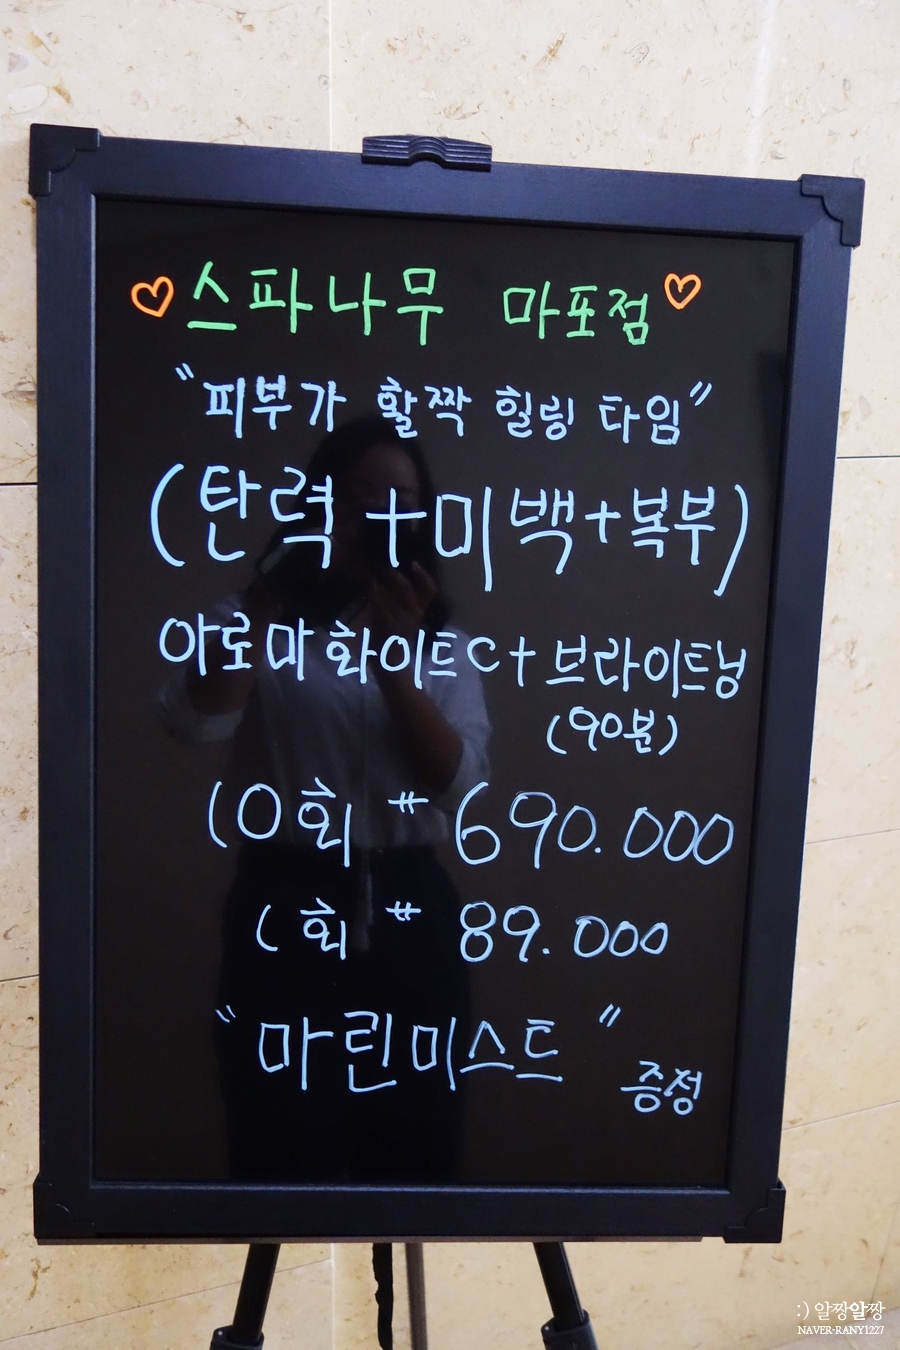 ♡스파나무 마포점♡
"피부가 활짝 힐링 타임"
(탄력+미백+복부)
아로마화이트C+브라이트닝
(90분)
10회 ₩690.000
1회 ₩89.000
"마린미스트"
증정
:) 알짱알짱
NAVER-RANY1227